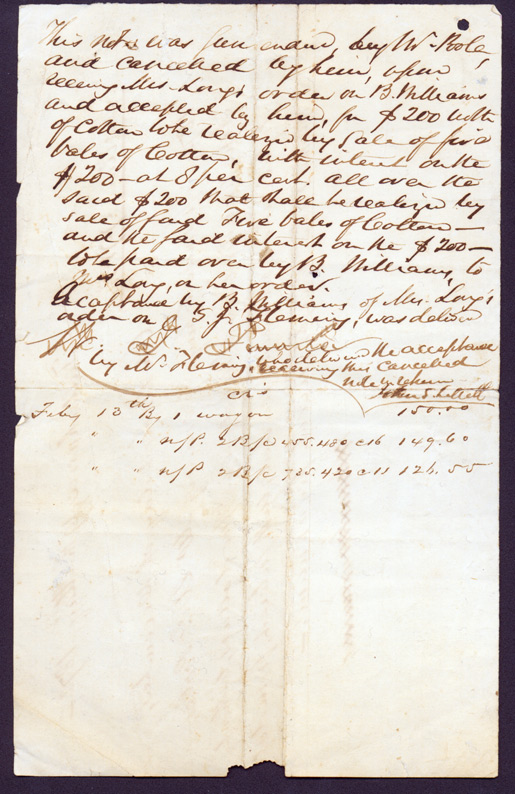 This note was Surrendered, by Mr. Pole,
and cancelled by him, upon
receiving Mrs. Long's order on B. Williams
and accepted by him, for $200 worth
of Cotton to be realized by Sale of five
bales of Cotton, with interest on the
$200 at 8 per cent all over the
said $200 that shall be realized by
sale of said Five bales of Cotton—
and the said interest on the $200—
to be paid over by B. Williams, to
Mrs Long, or her order.
Acceptance by B. Williams of Mrs. Long's
order on S. J. Fleming, was delivered
by Mr. Fleming, who delivered the acceptance
receiving this Cancelled
note
John S. Littell
Crs
Feby 13th By 1 wagon 150.00
" " N/P 2 B/C 455.480 c16 149.60
" " N/P 2 B/C 725.420 c11 126.55